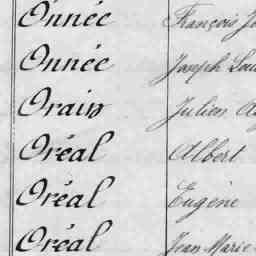 Onnée François
Onnée Joseph Louis
Orain Julien
Oréal Albert
Oréal Eugène
Oréal Jean Marie